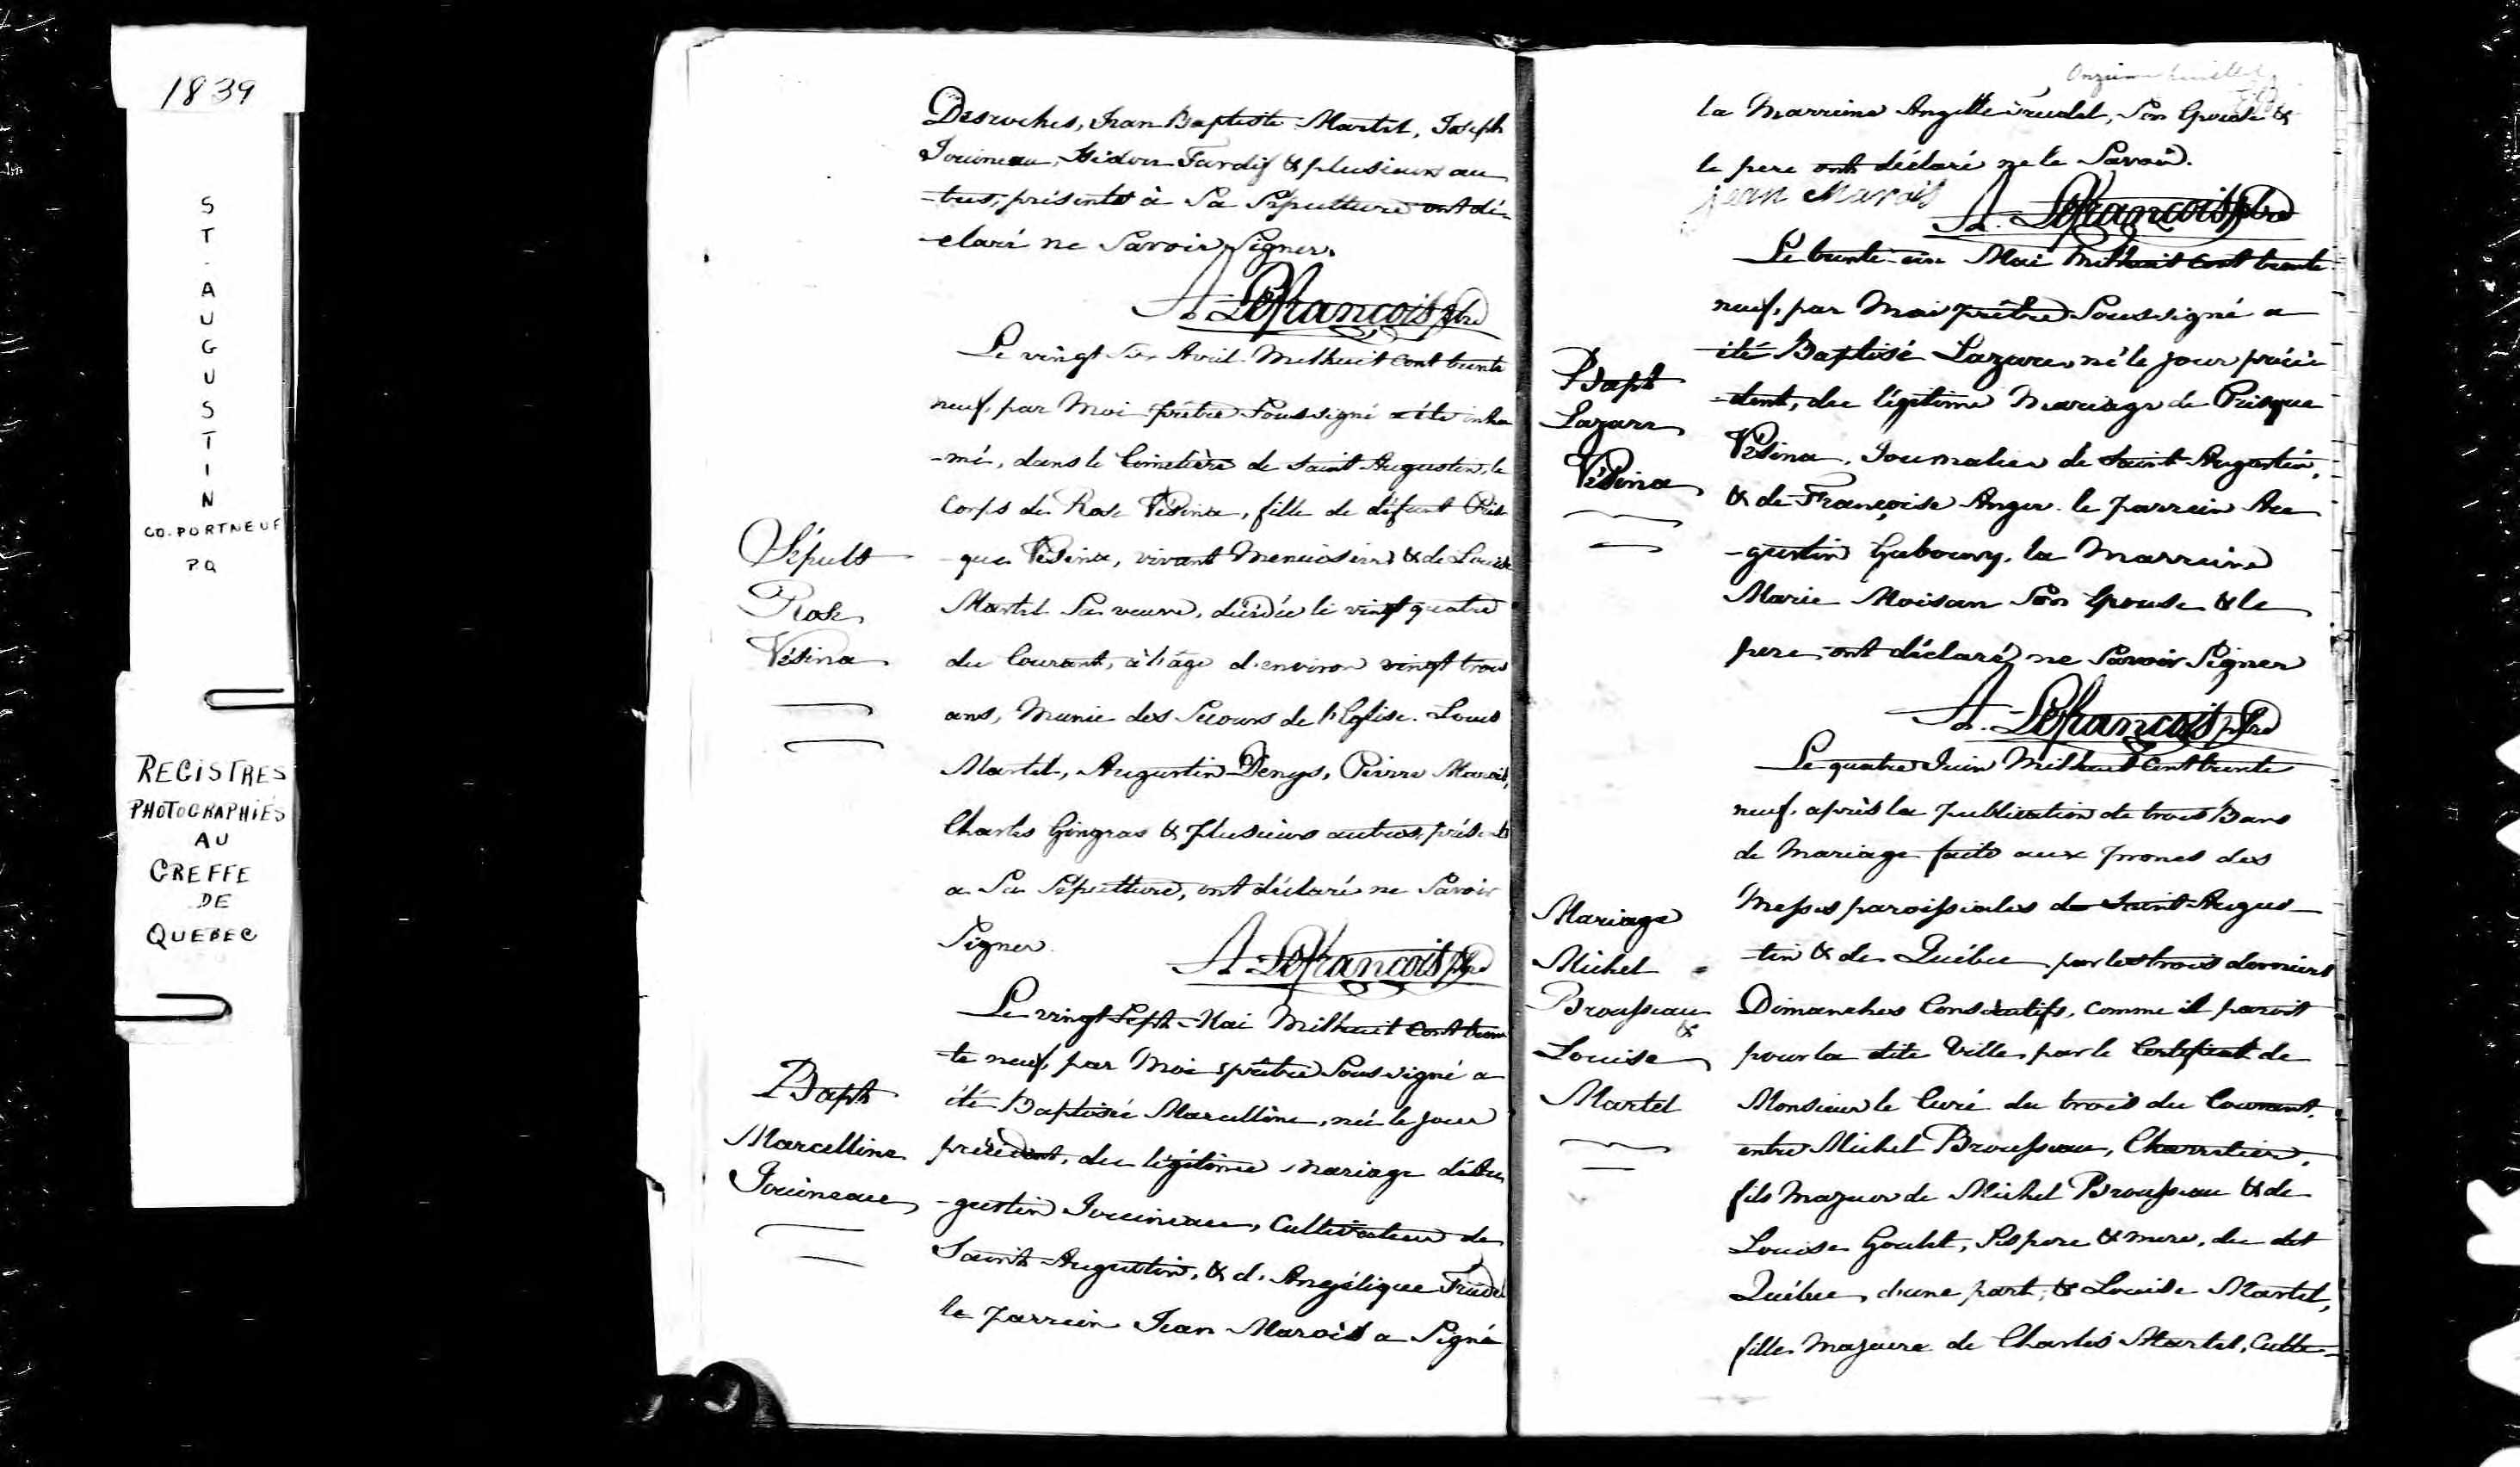 1839
ST. AUGUSTIN
CO. PORTNEUF
PQ
REGISTRES
PHOTOGRAPHIÉS
AU
GREFFE
DE
QUEBEC
Desroches, Jean Baptiste Martel, Joseph
Jouineau, Isidore Tardif & plusieurs au
-tres, présents à Sa Sépulture ont dé-
-claré ne Savoir Signer.
A. Lefrancois ptre
Le vingt Six Avril Mil huit cent trente
neuf, par Moi prêtre Soussigné a été inhu
-mé, dans le Cimetière de Saint Augustin, le
Corps de Rose Vésina, fille de défunt Pris
-que Vésina, vivant Menuisier & de Louise
Martel Sa veuve, décédée le vingt quatre
du Courant, à l'âge d'environ vingt trois
ans, Munie des Secours de l'Eglise. Louis
Martel, Augustin Denys, Pierre Marois,
Charles Gingras & plusieurs autres, présents
a Sa Sépulture, ont déclaré ne Savoir
Signer.
A. Lefrancois ptre
Sépult
Rose
Vésina
Le vingt Sept Mai Mil huit Cent tren
-te neuf, par Moi prêtre Soussigné a
été Baptisée Marcelline, née le jour
précédent, du légitime Mariage d'Au
-gustin Jouineau, Cultivateur de
Saint Augustin, & d'Angélique Trudel
le parrain Jean Marois a Signé
Bapt
Marcelline
Jouineau
Onzieme feuillet
la Marraine Angelle Trudel, Son Epouse &
le pere ont déclaré ne le Savoir.
jean Marois A. Lefrancois ptre
Le trente-un Mai Mil huit Cent trente
neuf, par Moi prêtre Soussigné a
été Baptisé Lazare, né le jour précé
-dent, du légitime Mariage de Prisque
Vésina, Journalier de Saint Augustin,
& de Françoise Anger. le parrain Au
-gustin Gaboury, la Marraine
Marie Moisan Son Epouse & le
pere, ont déclaré ne Savoir Signer
A. Lefrancois ptre
Bapt
Lazare
Vésina
Le quatre Juin Mil huit Cent trente
neuf, après la publication de trois Bans
de Mariage faite aux prones des
Messes paroissiales de Saint Augus-
-tin & de Québec par les trois derniers
Dimanches Consécutifs, comme il paroit
pour la dite Ville, par le Certificat de
Monsieur le Curé du trois du Courant,
entre Michel Brousseau, Charretier,
fils Majeur de Michel Brousseau & de
Louise Goulet, Ses pere & mere, du dit
Québec, d'une part, & Louise Martel,
fille Majeure de Charles Martel, Culti-
Mariage
Michel
Brousseau
&
Louise
Martel